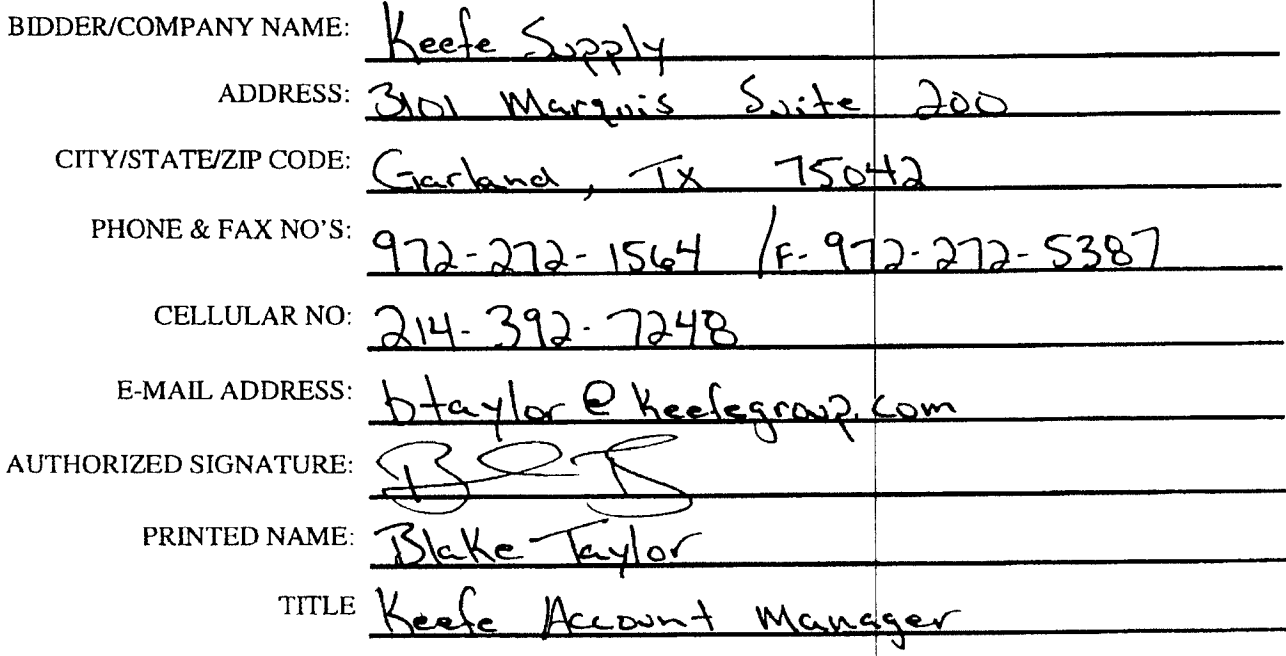 BIDDER/COMPANY NAME: Keefe Supply
ADDRESS: 3101 Marquis Suite 200
CITY/STATE/ZIP CODE: Garland, TX 75042
PHONE & FAX NO'S: 972-272-1564 /F-972-272-5387
CELLULAR NO: 214-392-7248
E-MAIL ADDRESS: btaylor@keefegroup.com
AUTHORIZED SIGNATURE:
PRINTED NAME: Blake Taylor
TITLE Keefe Account Manager